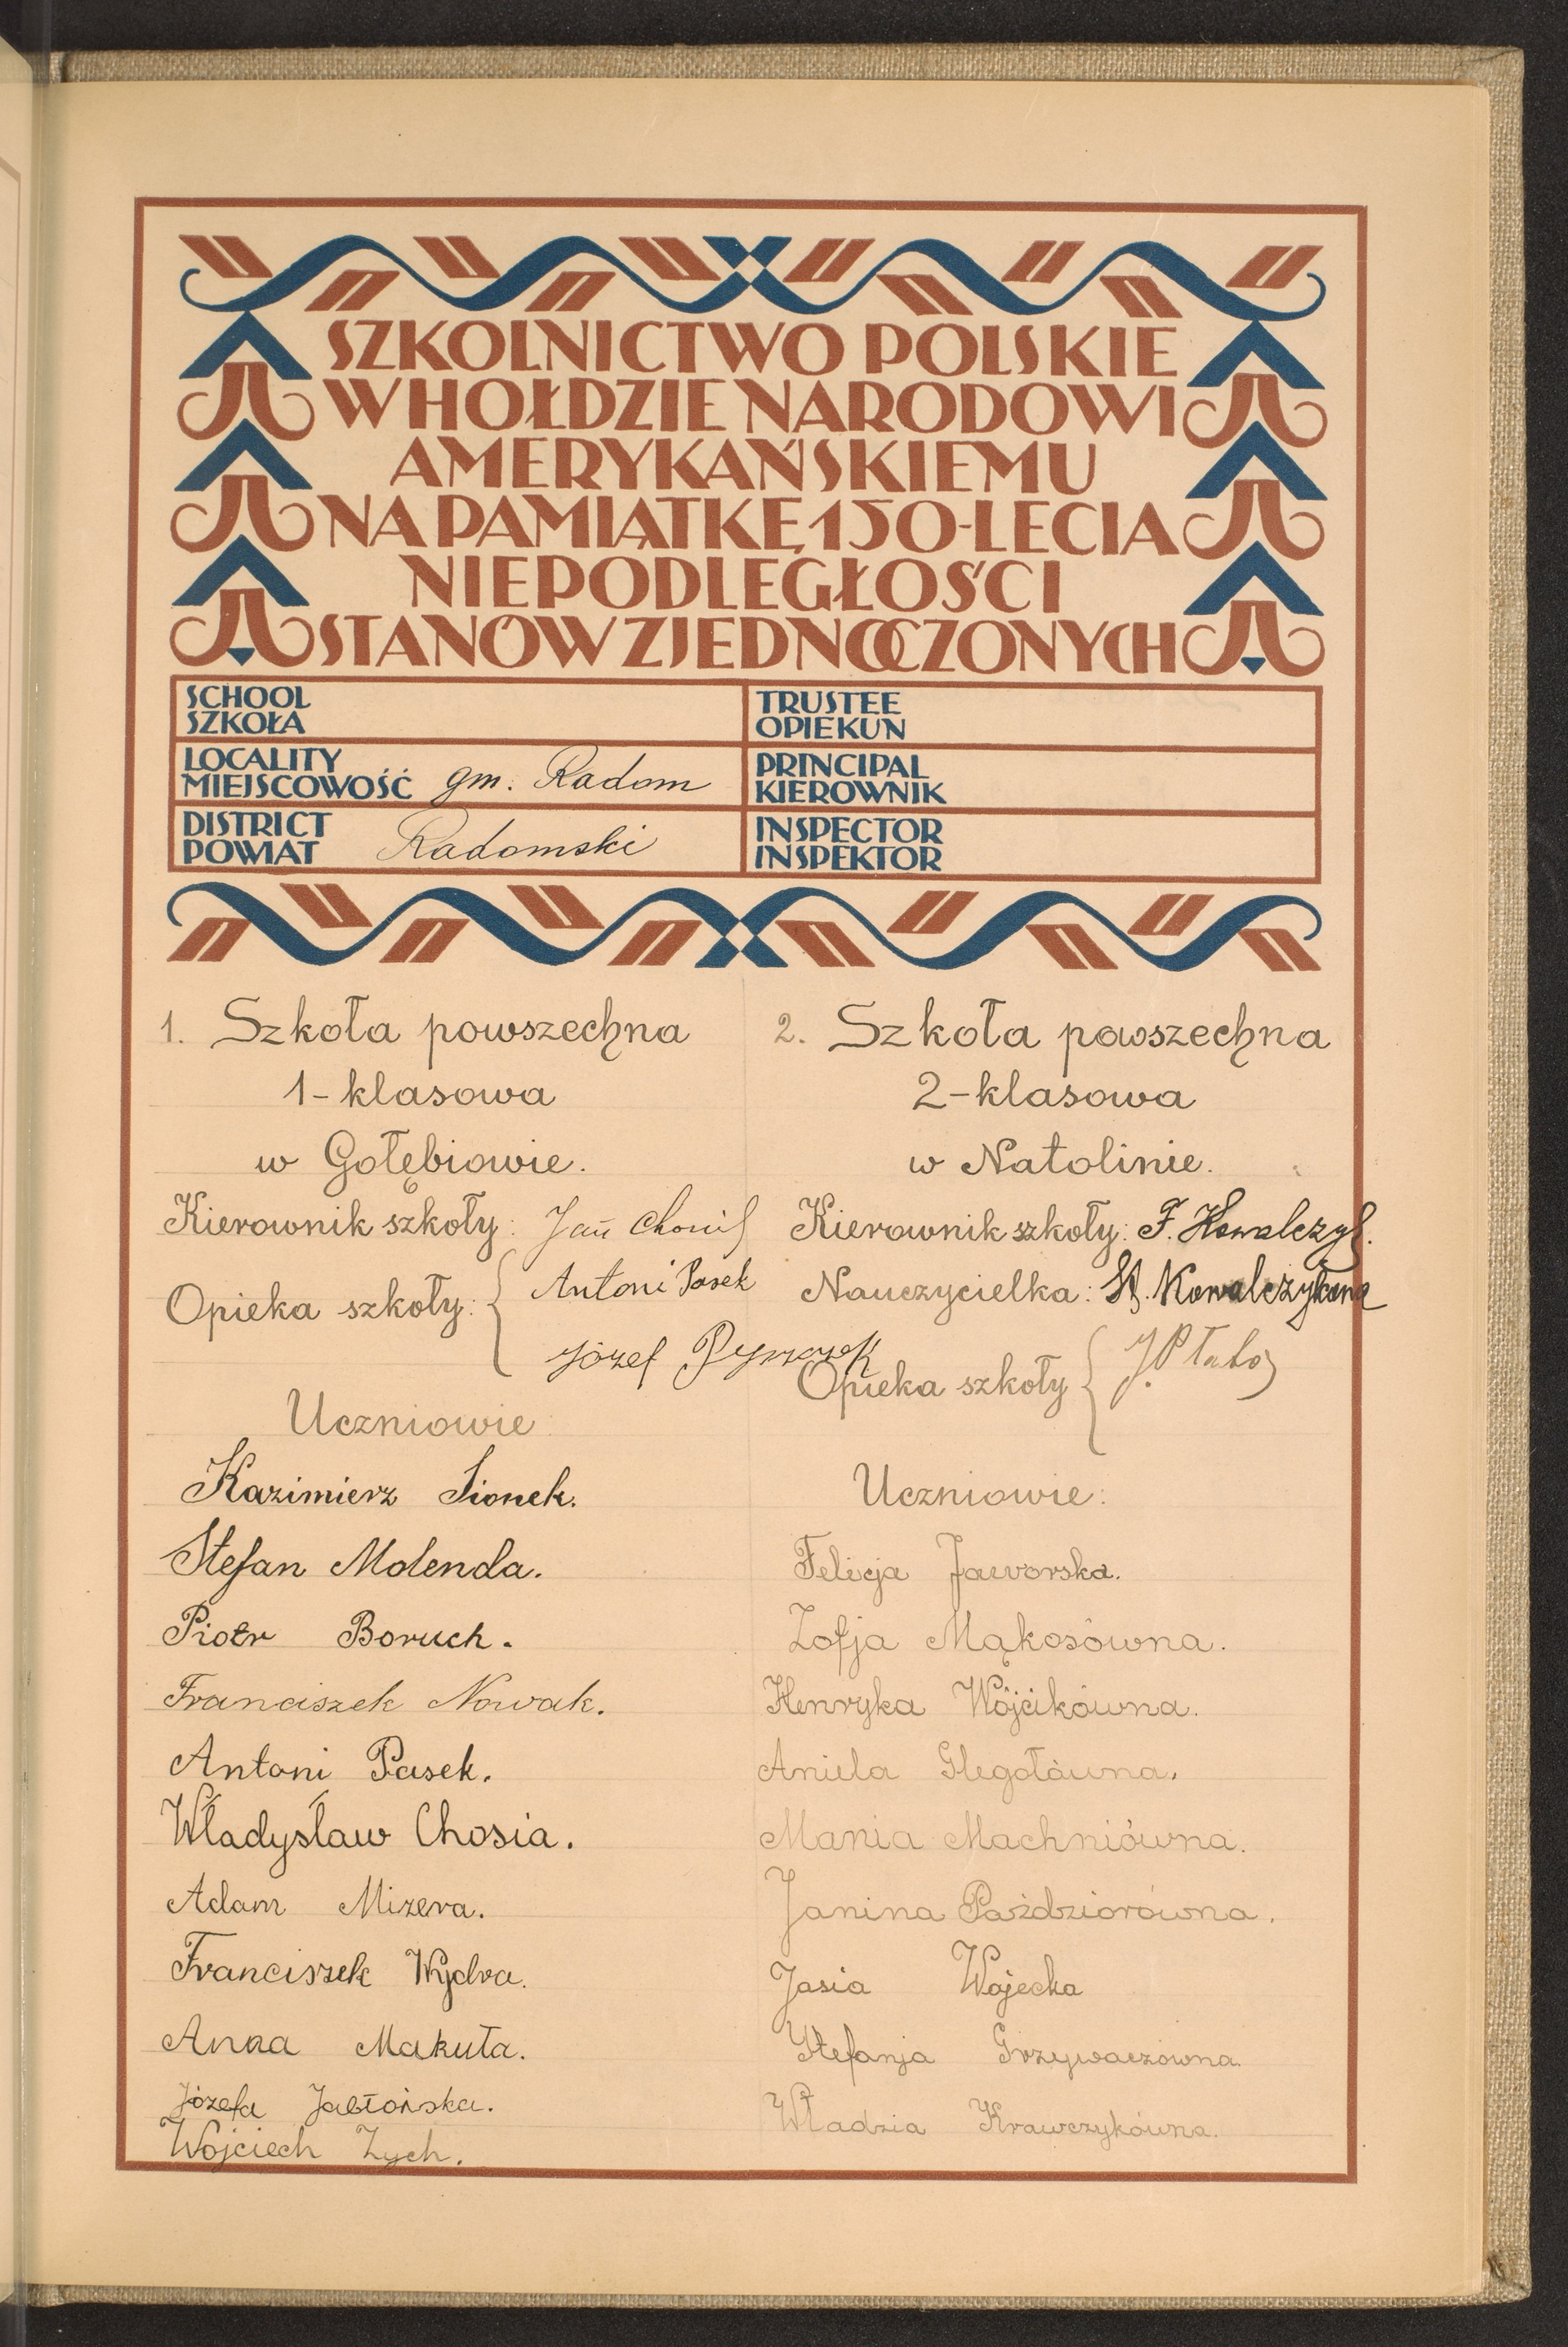 SZKOLNICTWO POLSKIE
W HOŁDZIE NARODOWI
AMERYKAŃSKIEMU
NA PAMIĄTKĘ 150-LECIA
NIEPODLEGŁOŚCI
STANÓW ZJEDNOCZONYCH
SCHOOL
SZKOŁA
TRUSTEE
OPIEKUN
LOCALITY
MIEJSCOWOŚĆ gm. Radom
PRINCIPAL
KIEROWNIK
DISTRICT
POWIAT Radomski
INSPECTOR
INSPEKTOR
1. Szkoła powszechna
1-klasowa
w Gołębiowie.
Kierownik szkoły: Jan
Opieka szkoły: Antoni Pasek
Józef
Uczniowie:
Kazimierz Sionek.
Stefan Molenda.
Piotr Boruch.
Franciszek Nowak.
Antoni Pasek.
Władysław Chosia.
Adam Mizera.
Franciszek Wydra.
Anna Makuła.
Józefa Jabłońska.
Wojciech Zych.
2. Szkoła powszechna
2-klasowa
w Natolinie.
Kierownik szkoły: F. Kowalczyk.
Nauczycielka: St. Kowalczykowa
Opieka szkoły
Uczniowie:
Felicja Jaworska.
Zofja Mąkosówna.
Henryka Wójcikówna.
Aniela Glegołówna.
Mania Machniówna.
Janina Paździorówna.
Jasia Wojecka
Stefanja Grzywaczówna.
Władzia Krawczykówna.